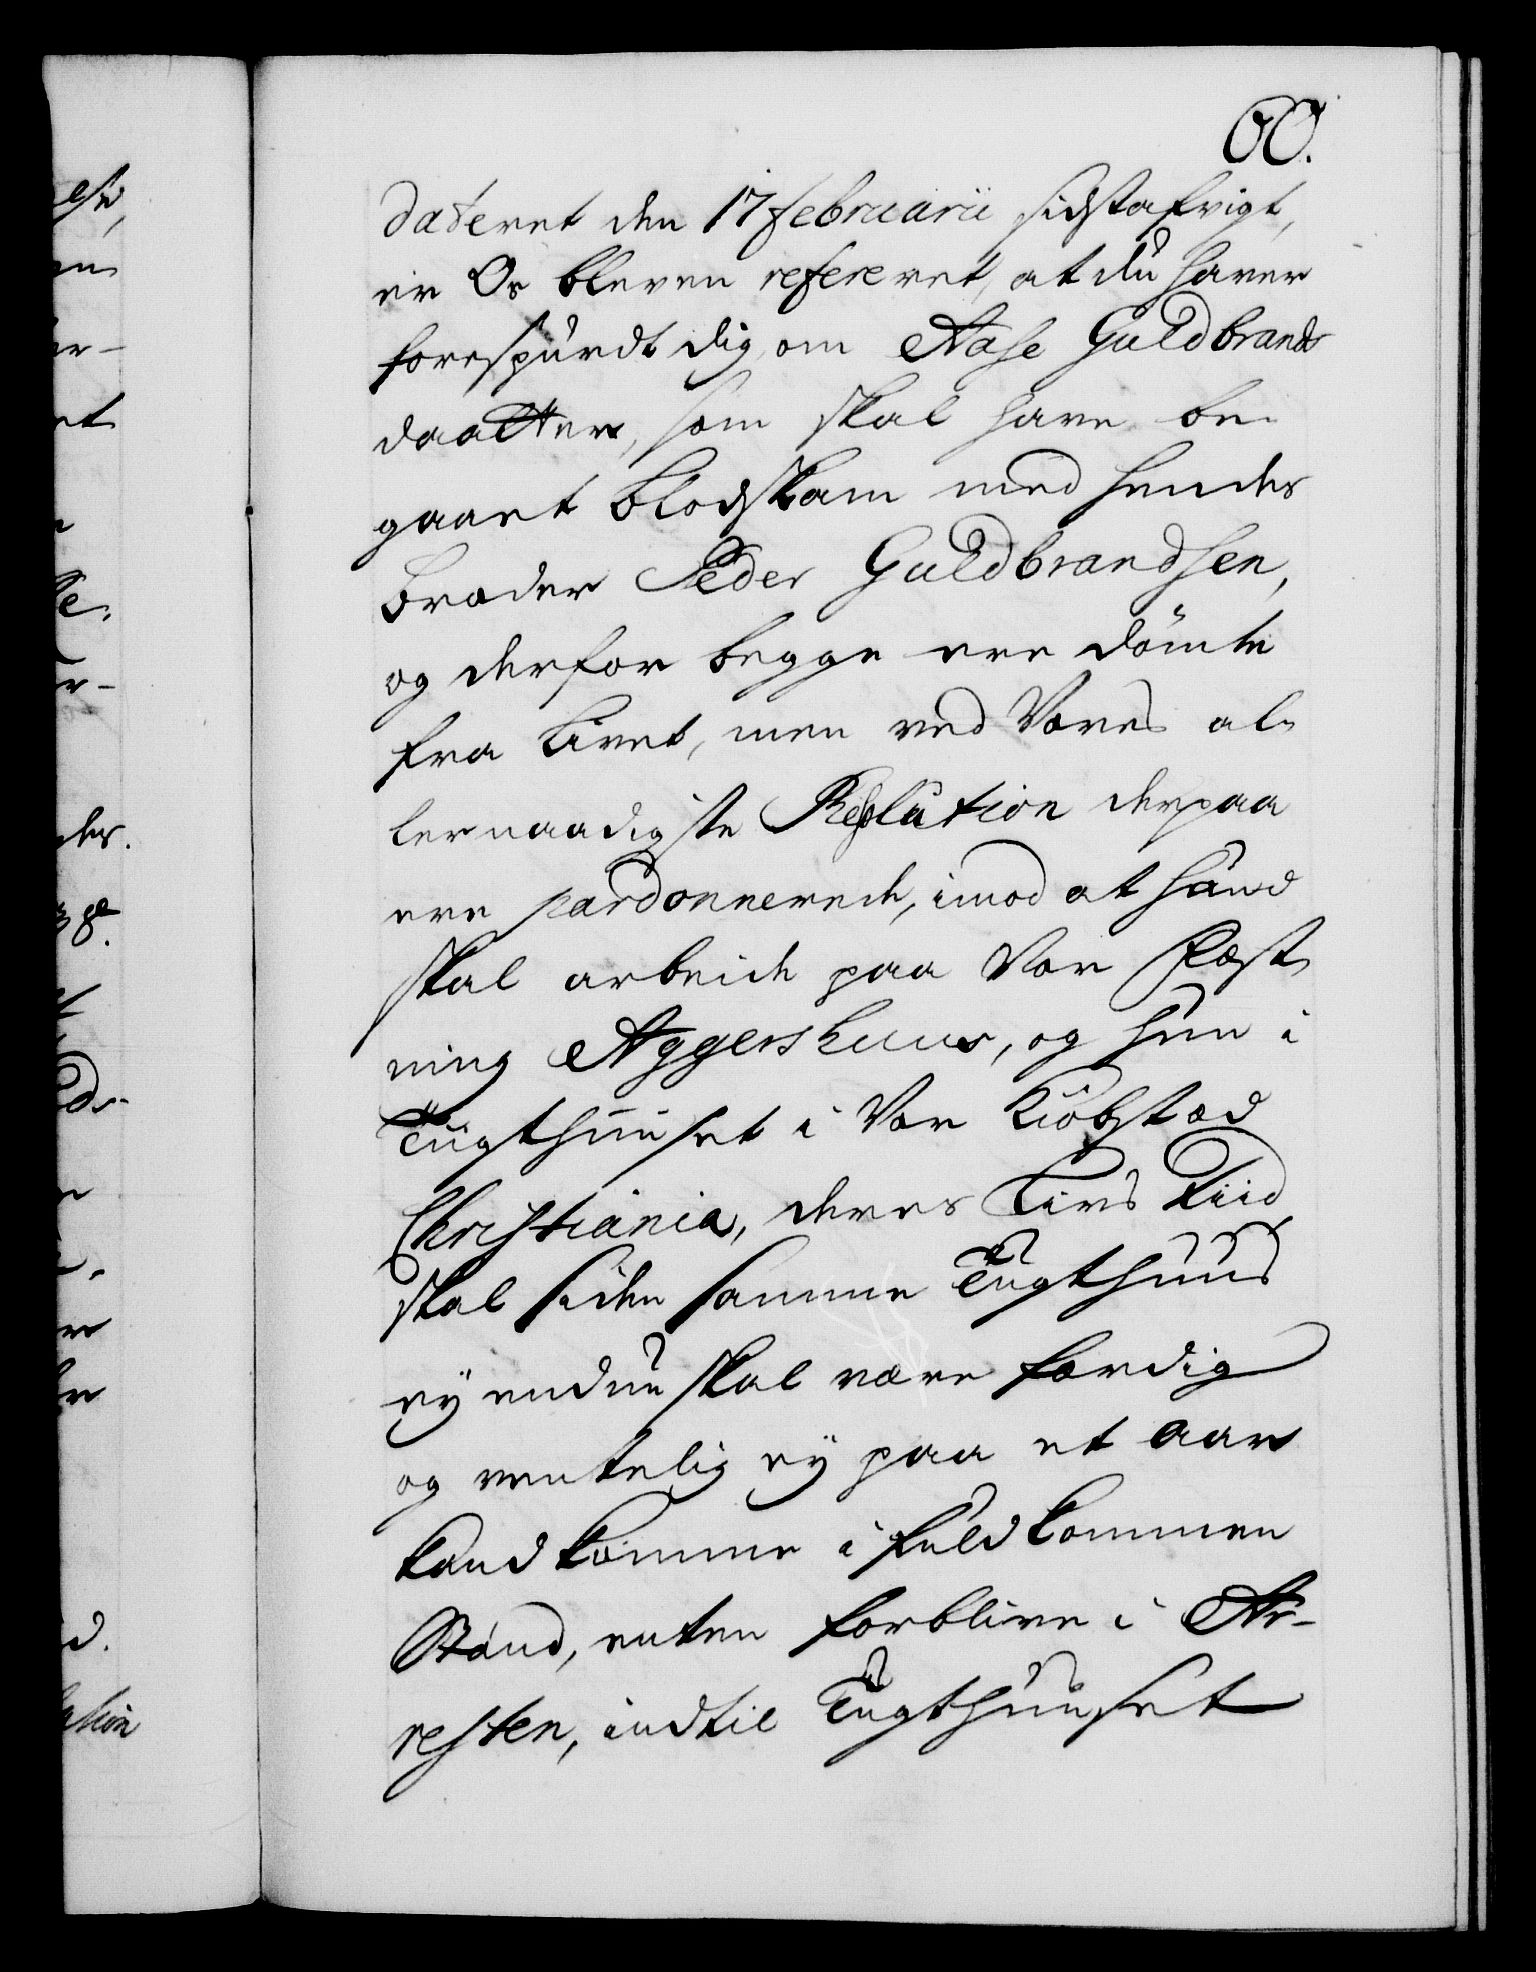 60.
dateret den 17 februarii sidstafvigt,
er Os bleven refereret, at du haver
forespurdt dig, om Aase Guldbrands
daatter, som skal have be-
gaaet Blodskam med hendes
Broder Peder Guldbrandsen,
og derfor begge ere dömte
fra Livet, men ved Vores al-
lernaadigste Resolution derpaa
ere pardonnerede, imod at hand
skal arbeide paa Vor Fæst-
ning Aggershuus, og hun i
Tugthuuset i Vor Kiöbstæd
Christiania, deres Livs Tiid
skal siden samme Tugthuus
ey endnu skal være færdig
og ventelig ey paa et aar
kand komme i fuldkommen
Stand, enten forblive i Ar-
resten, indtil Tugthuuset